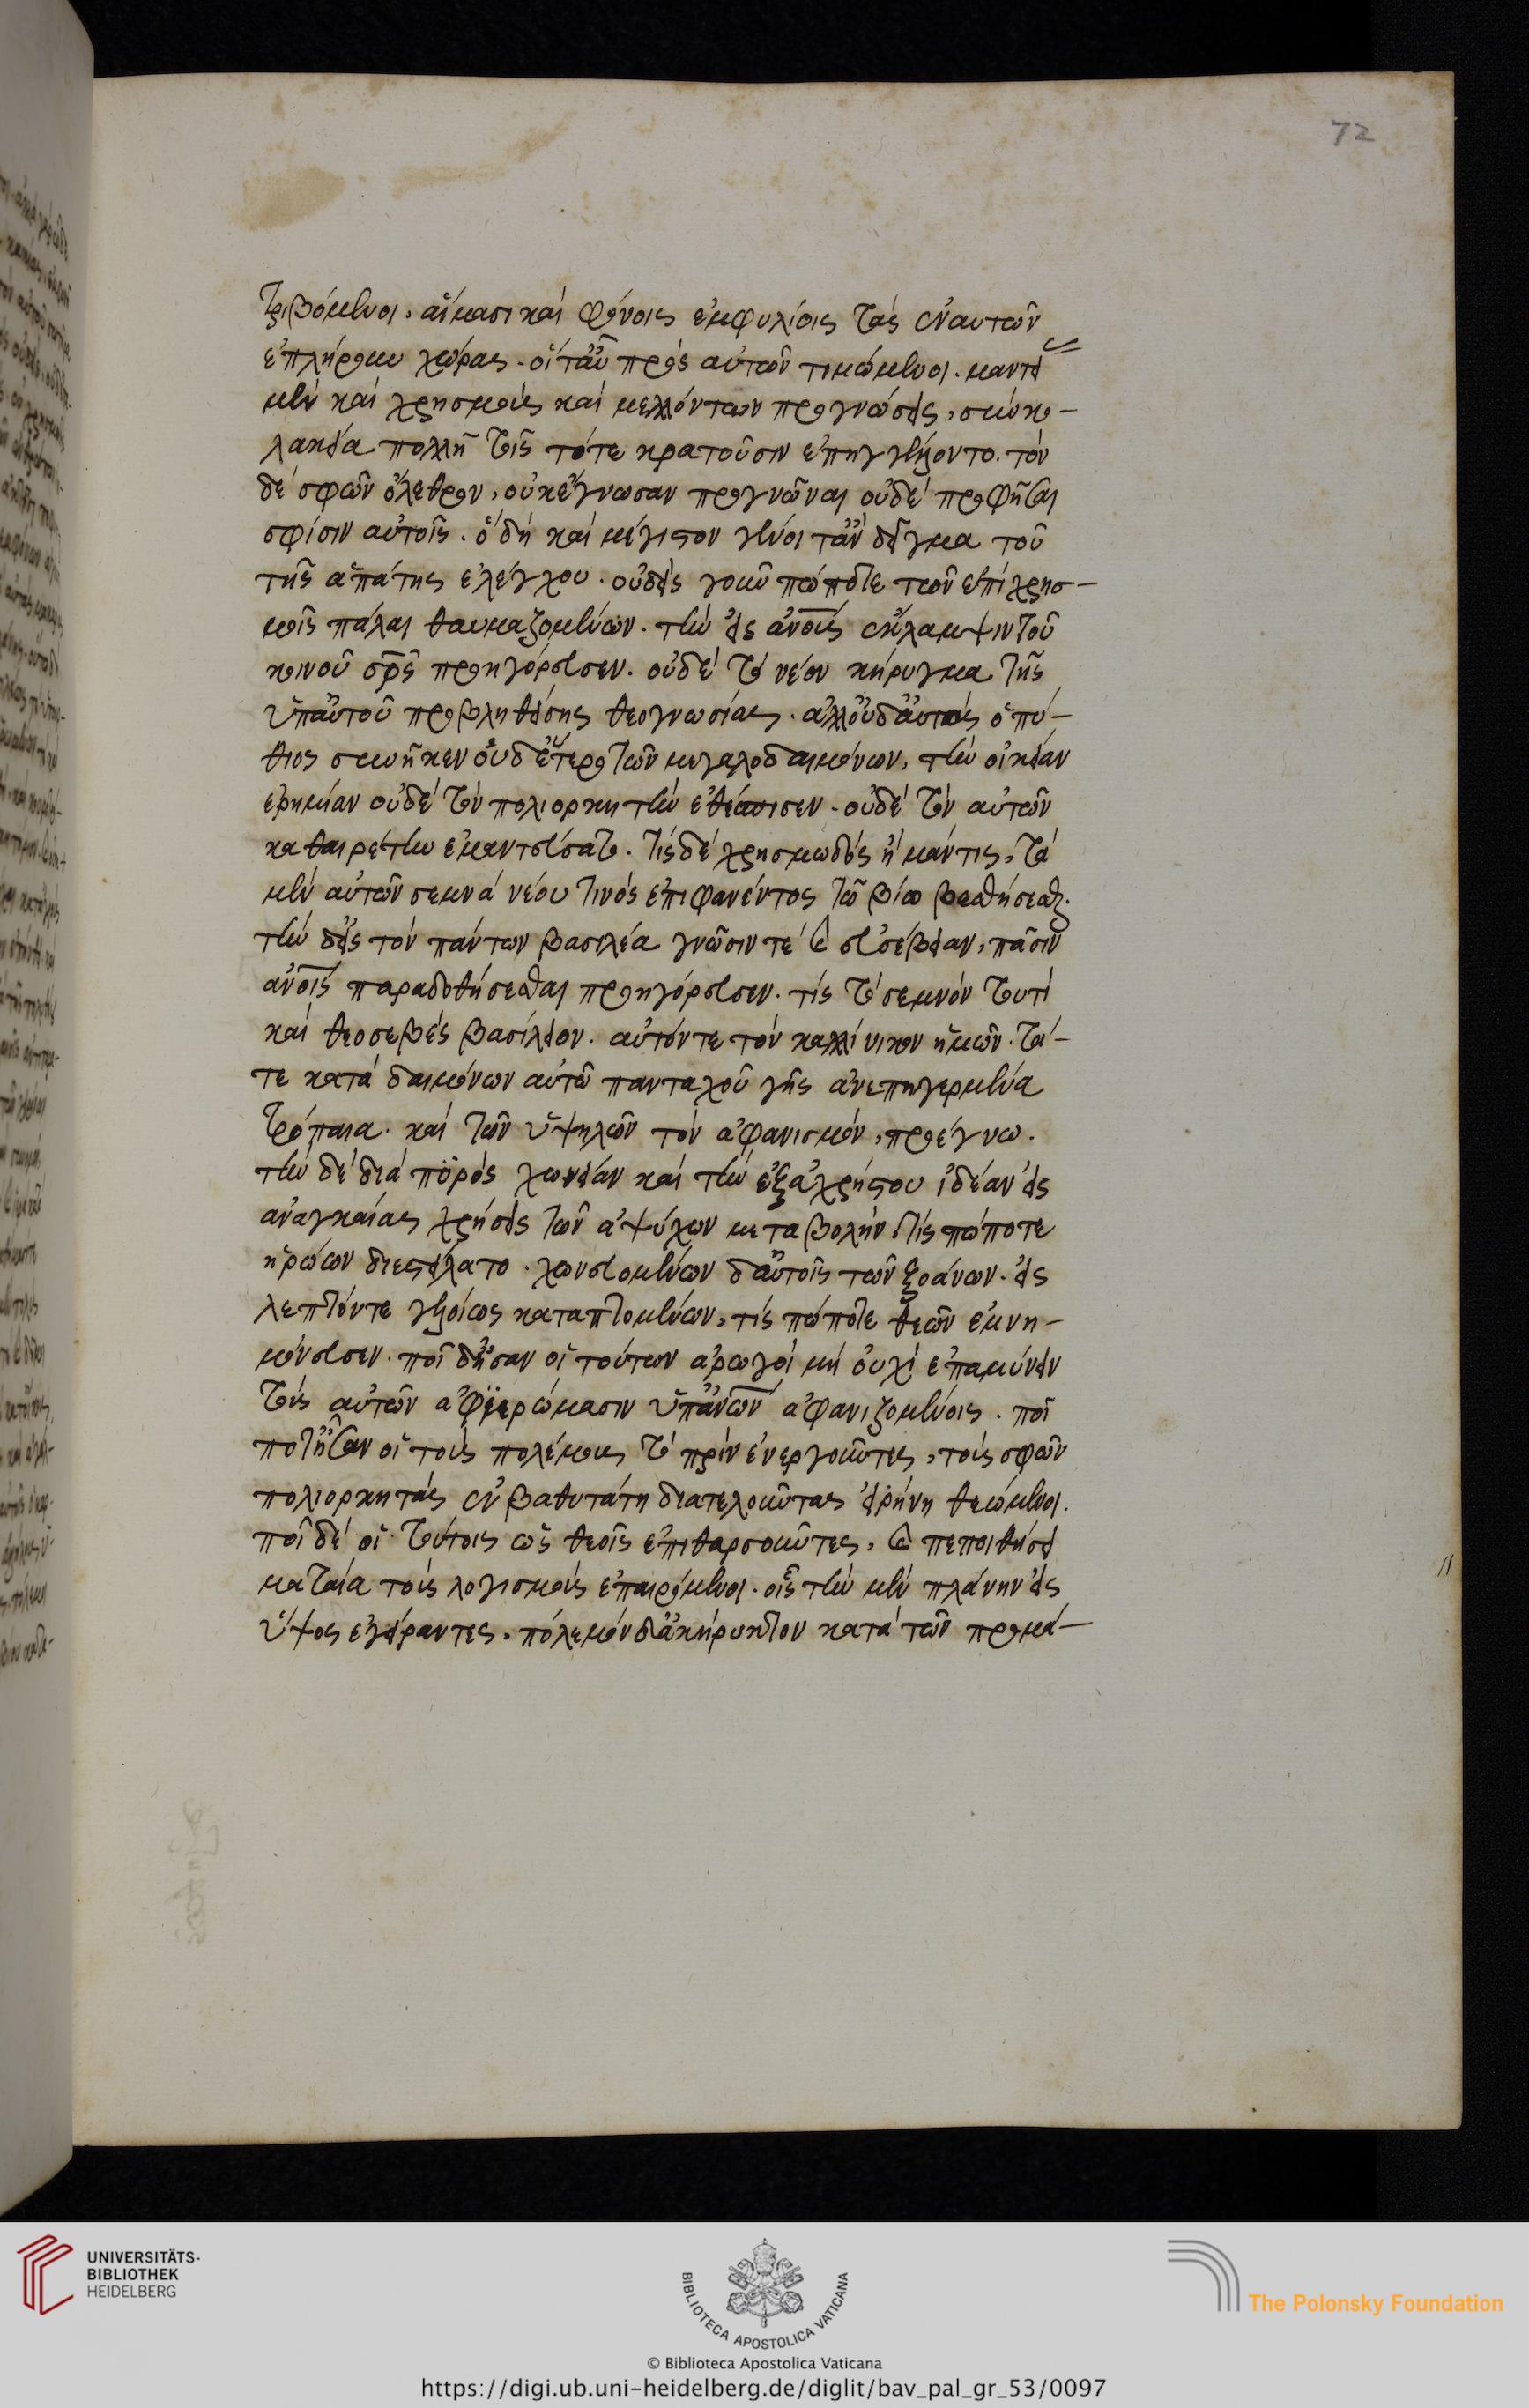 72
τριβόμενοι, αἵμασι καὶ φόνοις ἐμφυλίοις τὰς ἐν αυτῶν
ἐπλήρουν χώρας. οἵτ' αὖ πρὸς αὐτῶν τιμώμενοι. μαντεί
μὲν καὶ χρησμοὺς καὶ μελλόντων προγνώσεις, σὺν κο-
λακεία πολλῇ τοῖς τότε κρατοῦσιν ἐπηγγέλλοντο. τὸν
δὲ σφῶν ὄλεθρον, οὐκ ἔγνωσαν προγνῶναι οὐδὲ προφῆσαι
σφίσιν αὐτοῖς. ὃ δὴ καὶ μέγιστον γένοιτ' ἂν δεῖγμα τοῦ
τῆς ἀπάτης ἐλέγχου. οὐδεὶς γοῦν πώποτε τῶν ἐπὶ χρησ-
μοῖς πάλαι θαυμαζομένων. τὴν εἰς ἀνους ἔκλαμψιν τοῦ
κοινοῦ σρς προηγόρευσεν. οὐδὲ τὸ νέον κήρυγμα τῆς
ὑπ' αὐτοῦ προβληθείσης θεογνωσίας. ἀλλ' οὐδ' αὐτὸς ὁ πύ-
θιος συνῆκεν οὐδ' ἕτερος τῶν μεγαλοδαιμόνων, τὴν οἰκείαν
ἐρημίαν οὐδὲ τὸν πολιορκητὴν ἐθέασπισεν. οὐδὲ τὸν αὐτῶν
καθαιρέτην ἐμαντεύσατο. τίς δὲ χρησμωδὸς ἢ μάντις, τὰ
μὲν αὐτῶν σεμνὰ νέου τινὸς ἐπιφανέντος τῶ βίω σβεσθήσεσθαι.
τὴν δ' εἰς τὸν πάντων βασιλέα γνῶσιν τὲ καὶ εὐσέβειαν, πᾶσιν
ἀνοις παραδοθήσεσθαι προηγόρευσεν. τίς τὸ σεμνὸν τουτὶ
καὶ θεοσεβὲς βασίλειον. αὐτόν τε τὸν καλλίνικον ἡμῶν. τά-
τε κατὰ δαιμόνων αὐτῶ πανταχοῦ γῆς ἀνεπηγερμένα
τρόπαια. καὶ τῶν ὑψηλῶν τὸν ἀφανισμόν, προέγνω.
τὴν δὲ διὰ πϋρὸς χωνείαν καὶ τὴν ἐξ ἀχρήστου ἰδέαν εἰς
ἀναγκαίας χρήσεις τῶν ἀψύχων μεταβολήν. τίς πώποτε
ἡρώων διεστείλατο. χωνευομένων δ' αὐτοῖς τῶν ξοάνων. εἰς
λεπτόν τε γελοίως καταπτομένων, τίς πώποτε θεῶν ἐμνη-
μόνευσεν. ποῖ δ' ἦσαν οἱ τούτων ἀρωγοὶ μὴ οὐχὶ ἐπαμύνειν
τοῖς αὐτῶν ἀφϊερώμασιν ὑπ' ἀνων ἀφανιζομένοις. ποῖ
ποτ' ἦσαν οἱ τοὺς πολέμους τὸ πρὶν ἐνεργοῦντες, τοὺς σφῶν
πολιορκητὰς ἐν βαθυτάτη διατελοῦντας εἰρήνη θεώμενοι.
ποῖ δὲ οἱ τούτοις ὡς θεοῖς ἐπιθαρσοῦντες, καὶ πεποιθήσει
ματαία τοὺς λογισμοὺς ἐπαιρόμενοι. οἳ εἰς τὴν μὲν πλάνην εἰς
ὕψος ἐγείραντες. πόλεμόν δ' ἀκήρυκτον κατὰ τῶν προμά-
UNIVERSITÄTS-
BIBLIOTHEK
HEIDELBERG
BIBLIOTECA APOSTOLICA VATICANA
The Polonsky Foundation
© Biblioteca Apostolica Vaticana
https://digi.ub.uni-heidelberg.de/diglit/bav_pal_gr_53/0097